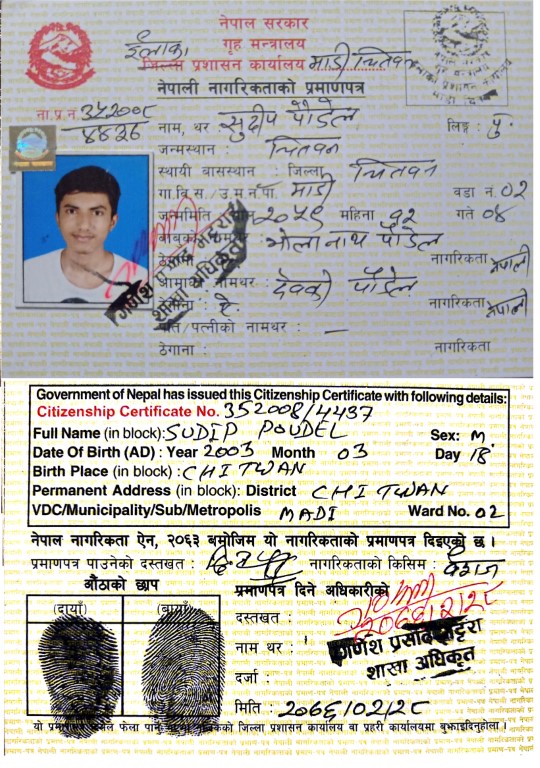 नेपाल सरकार
गृह मन्त्रालय
ईलाका
जिल्ला प्रशासन कार्यालय माडी चितवन
नेपाली नागरिकताको प्रमाणपत्र
ना.प्र.नं. 352008
नाम, थर : सुदीप पौडेल
लिङ्ग : पु.
जन्मस्थान : चितवन
स्थायी वासस्थान : जिल्ला चितवन
गा.वि.स./उ.म.न.पा. माडी वडा नं. 02
जन्ममिति २०५९ महिना १२ गते ०४
बाबुको नामथर : भोलानाथ पौडेल
ठेगाना : नागरिकता नेपाली
आमाको नामथर : देवकी पौडेल
ठेगाना : ऐ. नागरिकता नेपाली
पति/पत्नीको नामथर : —
ठेगाना : नागरिकता
गणेश प्रसाद
शाखा अधिकृत
Government of Nepal has issued this Citizenship Certificate with following details:
Citizenship Certificate No. 352008/4437
Full Name (in block): SUDIP POUDEL Sex: M.
Date Of Birth (AD) : Year 2003 Month 03 Day 18
Birth Place (in block) : CHITWAN
Permanent Address (in block): District CHITWAN
VDC/Municipality/Sub/Metropolis MADI Ward No. 02
नेपाल नागरिकता ऐन, २०६३ बमोजिम यो नागरिकताको प्रमाणपत्र दिइएको छ ।
प्रमाणपत्र पाउनेको दस्तखत : नागरिकताको किसिम : वंशज
औंठाको छाप
(दायाँ) (बायाँ)
प्रमाणपत्र दिने अधिकारीको
दस्तखत :
नाम थर : गणेश प्रसाद
दर्जा : शाखा अधिकृत
मिति :